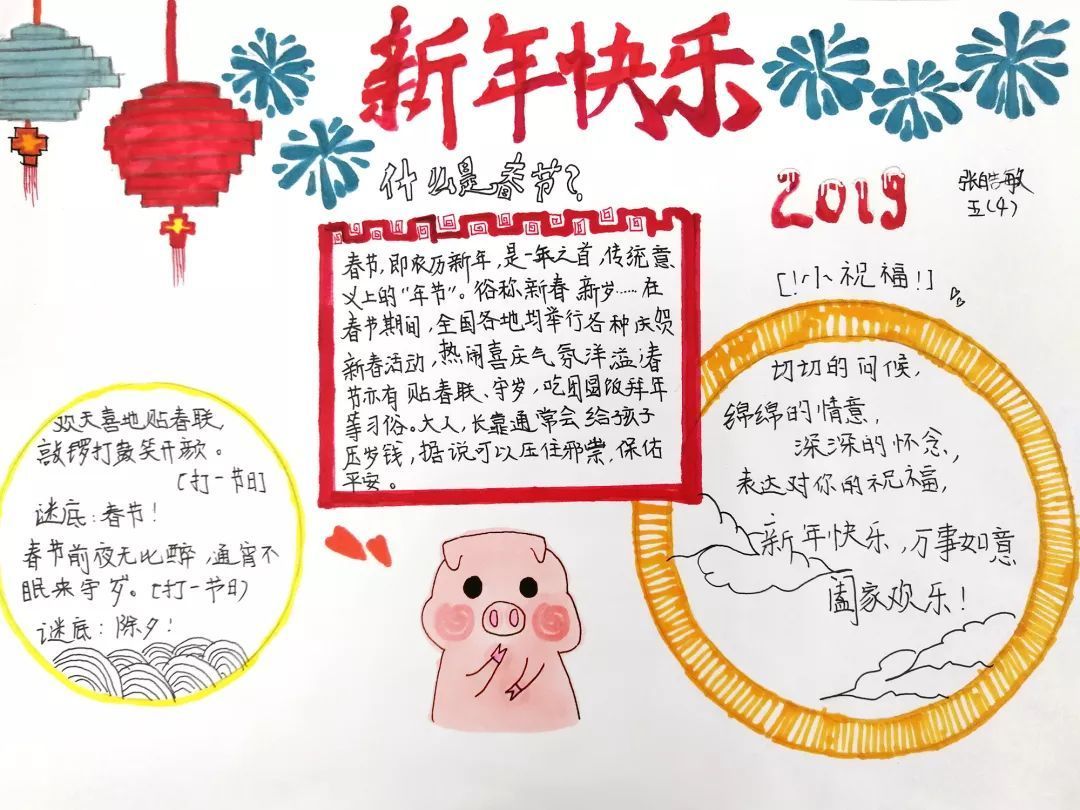 新年快乐
什么是春节?
2019
张皓敏
五(4)
春节,即农历新年,是一年之首,传统意
义上的“年节”。俗称新春 新岁……在
春节期间,全国各地均举行各种庆贺
新春活动,热闹喜庆气氛洋溢;春
节亦有贴春联、守岁,吃团圆饭拜年
等习俗。大人,长靠通常会给孩子
压岁钱,据说可以压住邪祟,保佑
平安。
[!小祝福!]
切切的问候,
绵绵的情意,
深深的怀念,
表达对你的祝福,
新年快乐,万事如意
阖家欢乐!
欢天喜地贴春联,
敲锣打鼓笑开颜。
[打一节日]
谜底:春节!
春节前夜无比醉,通宵不
眠来守岁。[打一节日)
谜底:除夕!